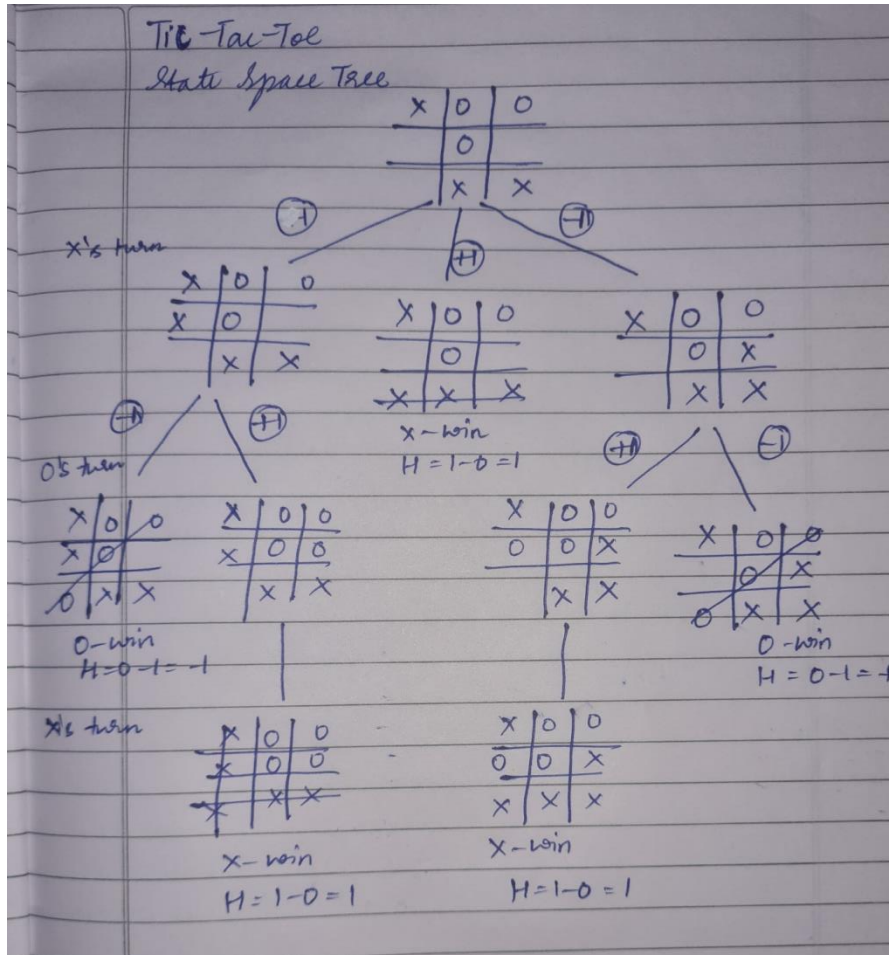 Tic-Tac-Toe
State Space Tree
X O O
O
X X
-1 +1 -1
X's turn
X O O
X O
X X
X O O
O
X X X
X O O
O X
X X
X-win
H = 1-0 = 1
-1 +1 +1 -1
O's turn
X O O
X O
O X X
X O O
X O O
X X
X O O
O O X
X X
X O O
O X
O X X
O-win
H = 0-1 = -1
O-win
H = 0-1 = -1
X's turn
X O O
X O O
X X X
X O O
O O X
X X X
X-win
H = 1-0 = 1
X-win
H = 1-0 = 1